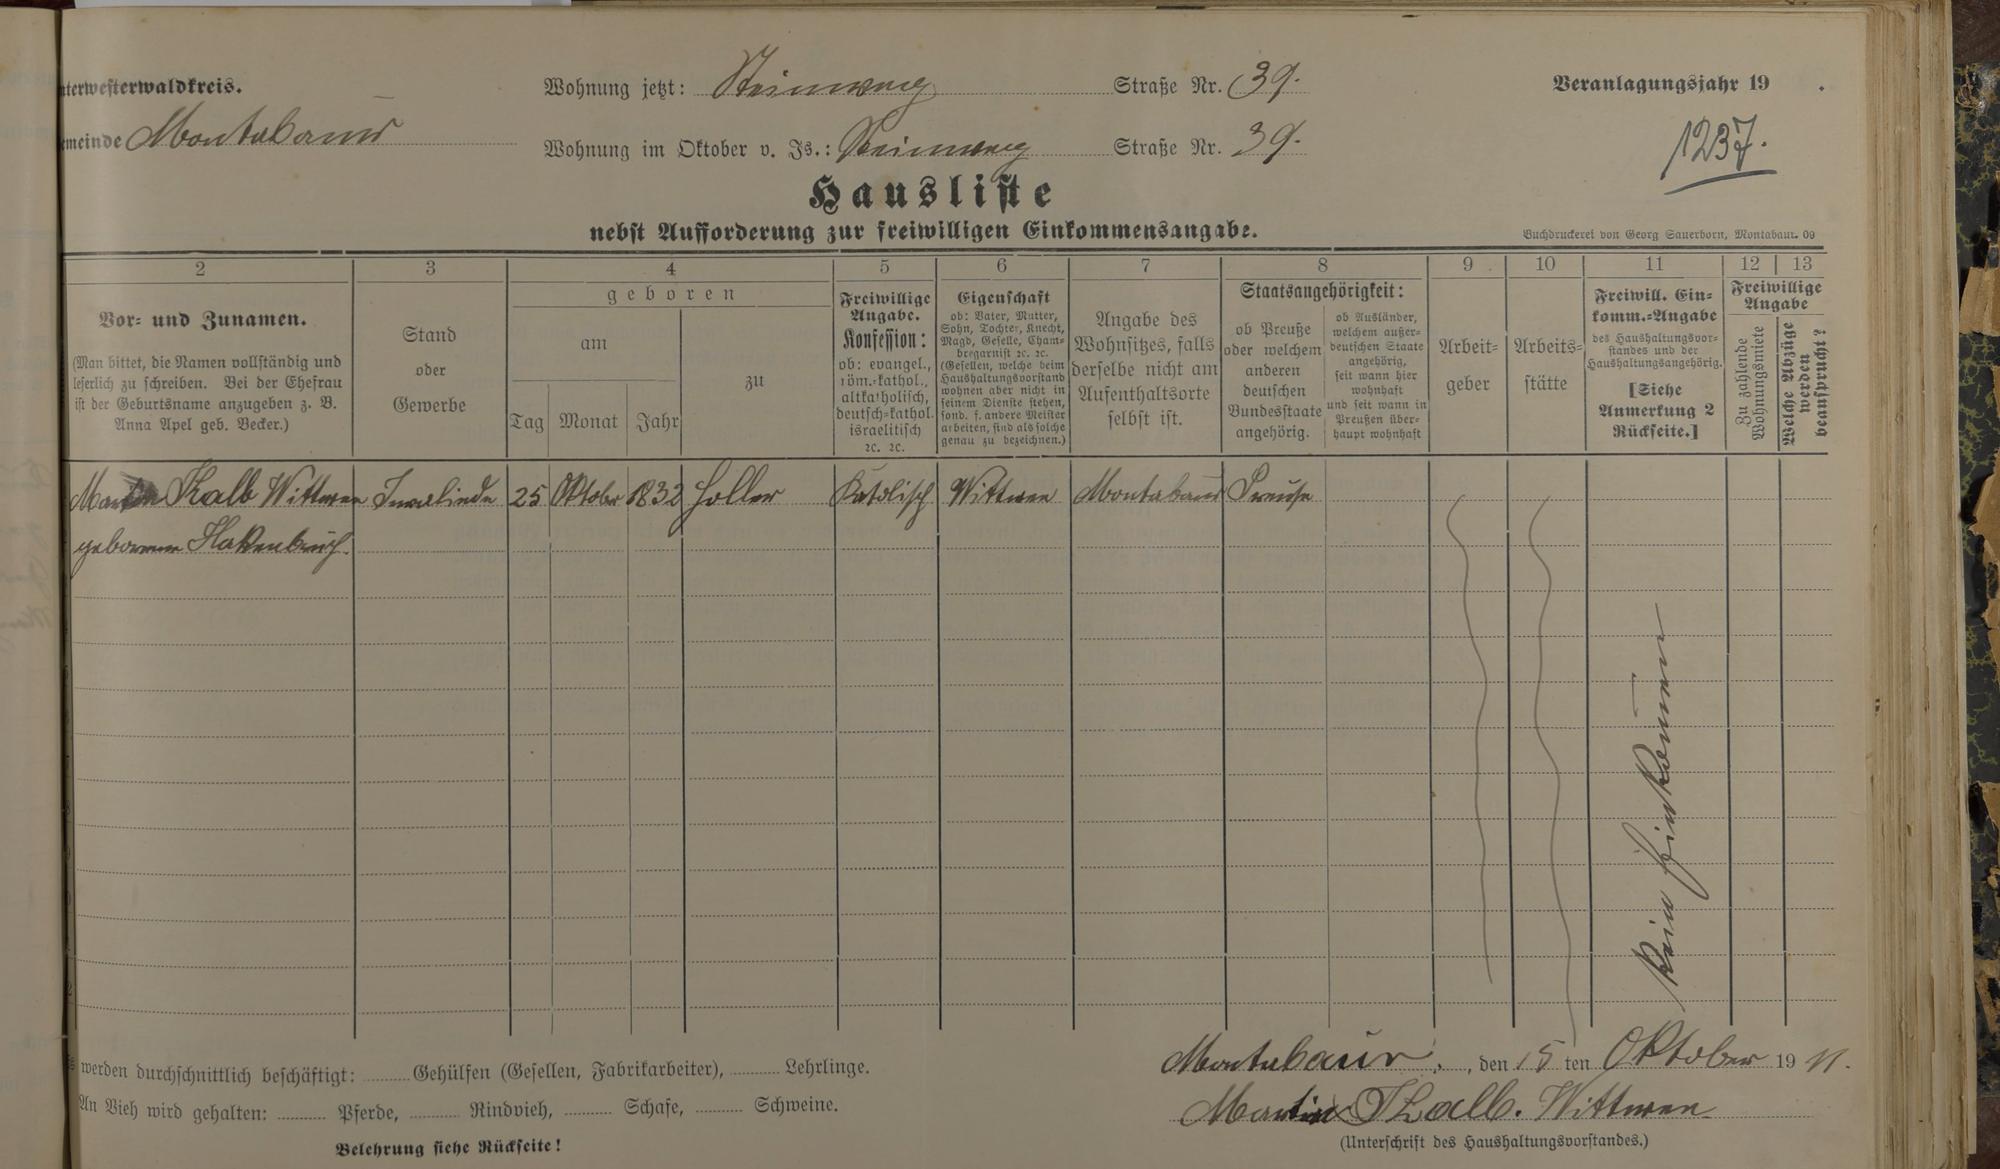 nterwesterwaldkreis.
Wohnung jetzt: Steinweg Straße Nr. 39.
Veranlagungsjahr 19 .
emeinde Montabaur
Wohnung im Oktober v. Js.: Steinweg Straße Nr. 39.
1237.
Hausliste
nebst Aufforderung zur freiwilligen Einkommensangabe.
Buchdruckerei von Georg Sauerborn, Montabaur. 09
2 3 4 5 6 7 8 9 10 11 12 13
Vor- und Zunamen.
(Man bittet, die Namen vollständig und
leserlich zu schreiben. Bei der Ehefrau
ist der Geburtsname anzugeben z. B.
Anna Apel geb. Becker.)
Stand
oder
Gewerbe
geboren
am
zu
Tag Monat Jahr
Freiwillige
Angabe.
Konfession:
ob: evangel.,
röm.-kathol.,
altkatholisch,
deutsch-kathol.
israelitisch
ec. ec.
Eigenschaft
ob: Vater, Mutter,
Sohn, Tochter, Knecht,
Magd, Geselle, Cham-
bregarnist ec. ec.
(Gesellen, welche beim
Haushaltungsvorstand
wohnen aber nicht in
seinem Dienste stehen,
sond. f. andere Meister
arbeiten, sind als solche
genau zu bezeichnen.)
Angabe des
Wohnsitzes, falls
derselbe nicht am
Aufenthaltsorte
selbst ist.
Staatsangehörigkeit:
ob Preuße
oder welchem
anderen
deutschen
Bundesstaate
angehörig.
ob Ausländer,
welchem außer-
deutschen Staate
angehörig,
seit wann hier
wohnhaft
und seit wann in
Preußen über-
haupt wohnhaft
Arbeit-
geber
Arbeits-
stätte
Freiwill. Ein-
komm.-Angabe
des Haushaltungsvor-
standes und der
Haushaltungsangehörig.
[Siehe
Anmerkung 2
Rückseite.]
Freiwillige
Angabe
Zu zahlende
Wohnungsmiete
Welche Abzüge
werden
beansprucht?
Martin Kalb Wittwen Invalinde 25 Oktober 1832 Holler Katolisch Wittwen Montabaur Preuse
geborenen Hakenbruch.
Kein Einkommen
Montabaur, den 15 ten Oktober 19 11.
Martin Kalb. Wittwen
(Unterschrift des Haushaltungsvorstandes.)
s werden durchschnittlich beschäftigt: Gehülfen (Gesellen, Fabrikarbeiter), Lehrlinge.
An Vieh wird gehalten: Pferde, Rindvieh, Schafe, Schweine.
Belehrung siehe Rückseite!